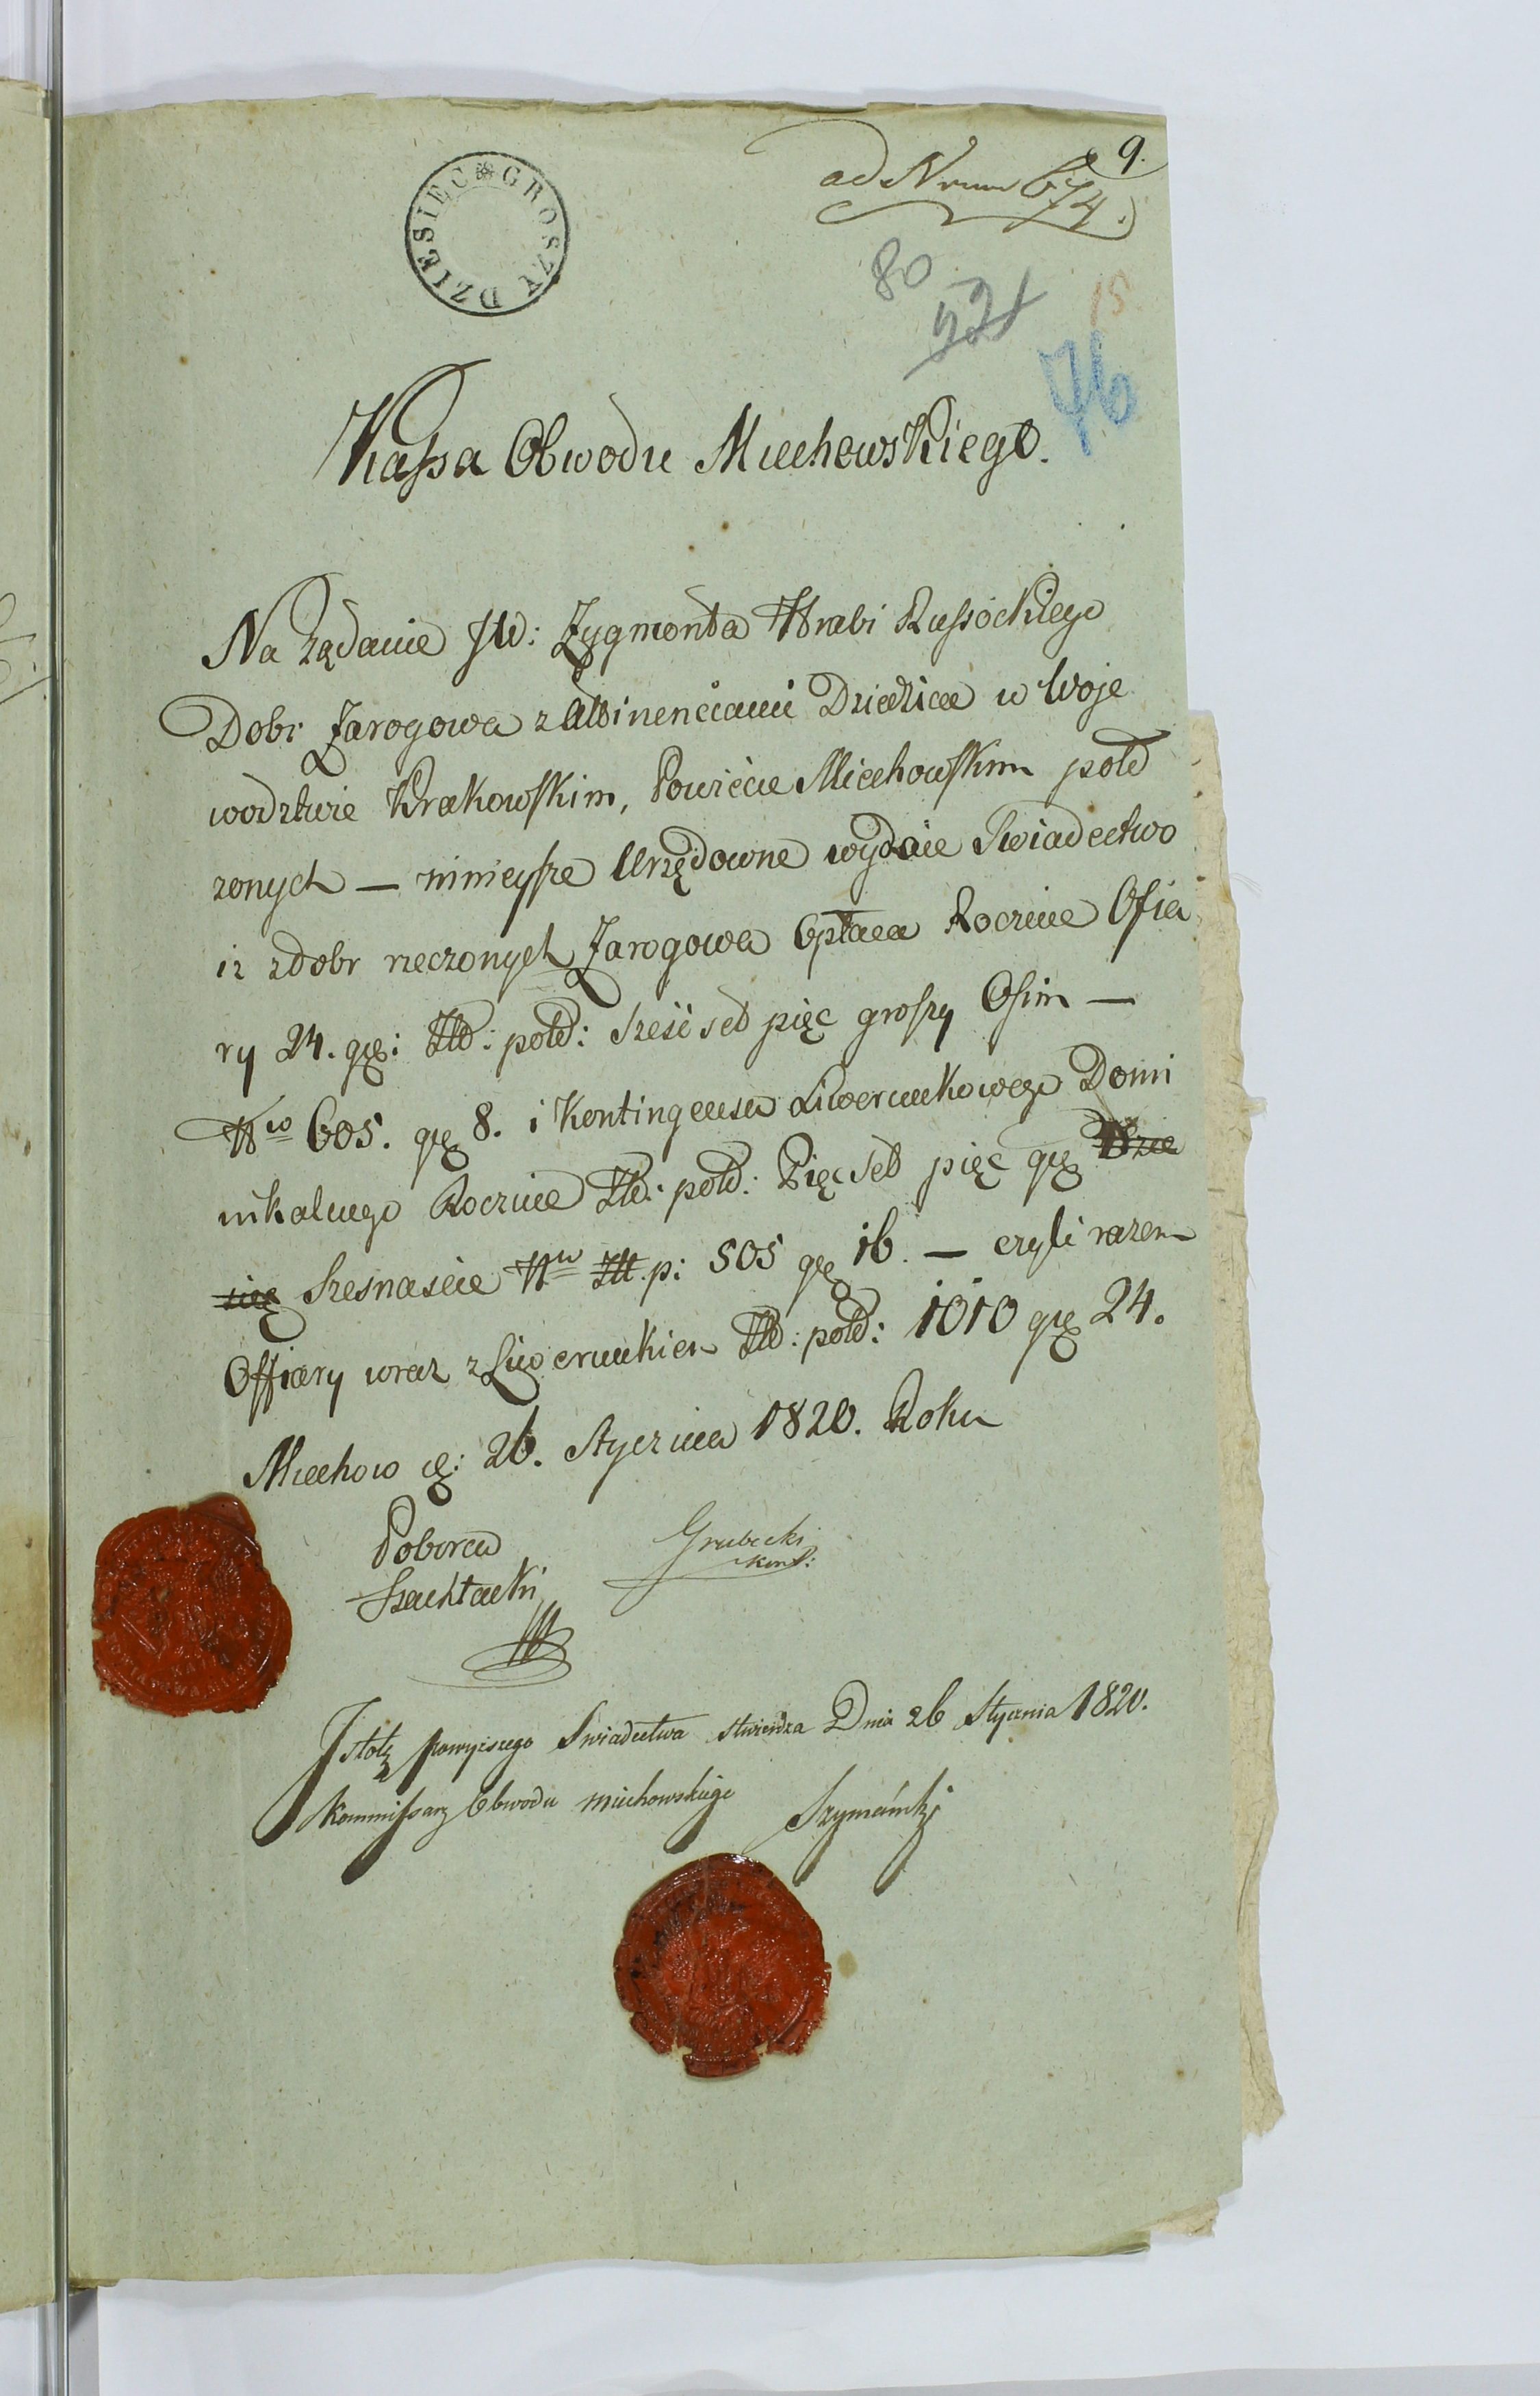 9.
ad Nrum 674.
DZIESIĘC GROSZY
80
15
76
Kassa Obwodu Miechowskiego.
Na Żądanie JW: Zygmonta Hrabi Russockiego
Dobr Jarogowa z Attinenciami Dziedzica w Woje
wodztwie Krakowskim, Powiecie Miechowskim poło
zonych — ninieysze Urzędowne wydaie Swiadectwo
iz z dobr rzeczonych Jarogowa Opłaca Rocznie Ofia
ry 24. gr: Zło: pols: Sześćset pięc groszy Osim —
Nro 605. gr 8. i Kontingensu Liwerunkowego Domi
nikalnego Rocznie Zło: pols: Pięcset pięc gr
Szesnascie Nro Zł. p: 505 gr 16. — czyli razem
Offiary wraz z Liwerunkiem Zło: pols: 1010 gr 24.
Miechow d: 26. Stycznia 1820. Roku
Poborca
Szachtacki
Grubecki
Kont:
Istotę powyzszego Swiadectwa stwierdza Dnia 26 Stycznia 1820.
Kommissarz Obwodu Miechowskiego Szymański